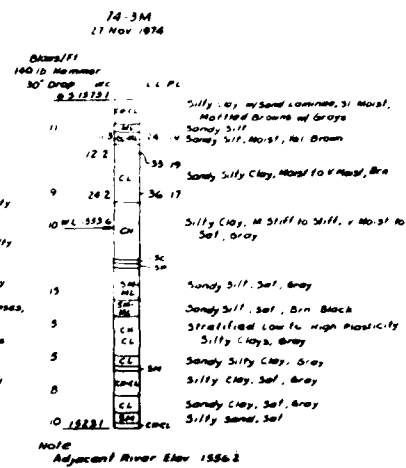 74-3M
27 Nov 1974
Blows/Ft
140 lb Hammer
30" Drop WC LL PL
Silty Clay w/Sand Laminae, Sl Moist,
Mottled Browns w/ Grays
11 ML Sandy Silt
CL-ML 24 Sandy Silt, Moist, Brown
12.2 35 19
CL Sandy Silty Clay, Moist to V Moist, Brn
9 24.2 36 17
10 WL 1555.6 CH Silty Clay, M Stiff to Stiff, V Moist to
Sat, Gray
SC
SM
15 SM-ML Sandy Silt, Sat, Gray
SM-ML Sandy Silt, Sat, Brn Black
5 CH Stratified Low to High Plasticity
CL Silty Clays, Gray
5 CL Sandy Silty Clay, Gray
SM
8 CH-CL Silty Clay, Sat, Gray
CL Sandy Clay, Sat, Gray
10 1525.1 SM Silty Sand, Sat
CH-CL
Note
Adjacent River Elev 1556.2